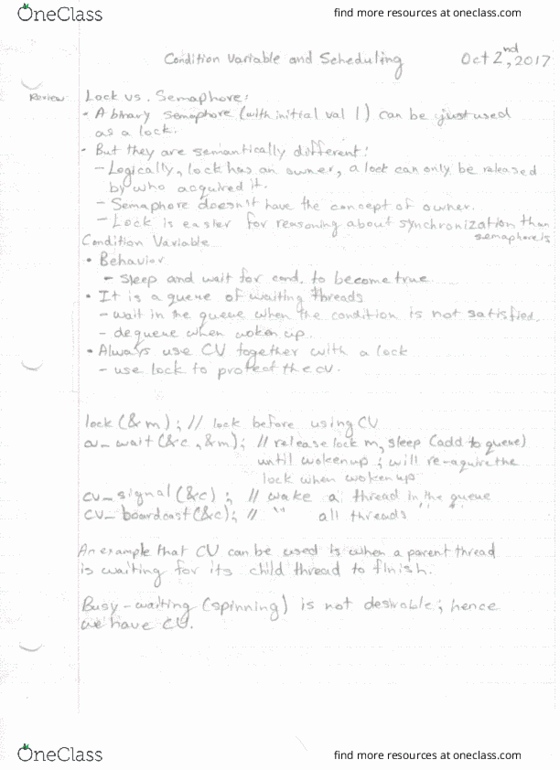 OneClass
find more resources at oneclass.com
Condition Variable and Scheduling Oct 2nd, 2017
Review Lock vs. Semaphore:
• A binary semaphore (with initial val 1) can be just used
as a lock.
• But they are semantically different:
- Logically, lock has an owner, a lock can only be released
by who acquired it.
- Semaphore doesn't have the concept of owner.
- Lock is easier for reasoning about synchronization than
semaphore is
Condition Variable
• Behavior
- sleep and wait for cond. to become true
• It is a queue of waiting threads
- wait in the queue when the condition is not satisfied.
- dequeue when woken up.
• Always use CV together with a lock
- use lock to protect the cv.
lock (&m); // lock before using CV
cv_wait (&c, &m); // release lock m, sleep (add to queue)
until wokenup; will re-aquire the
lock when wokenup
cv_signal (&c); // wake a thread in the queue
cv_boardcast (&c); // " all threads " " "
An example that CV can be used is when a parent thread
is waiting for its child thread to finish.
Busy-waiting (spinning) is not desirable; hence
we have CV.
OneClass
find more resources at oneclass.com